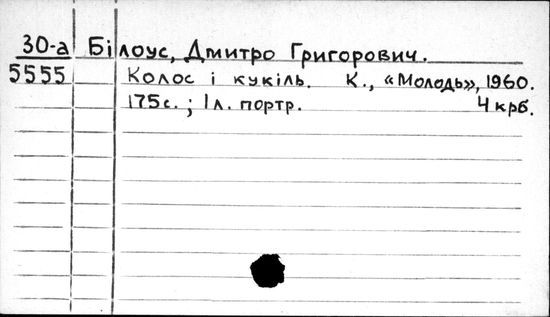 30-а Білоус, Дмитро Григорович.
5555 Колос і кукіль. К., «Молодь», 1960.
175с.; 1л. портр. 4 крб.